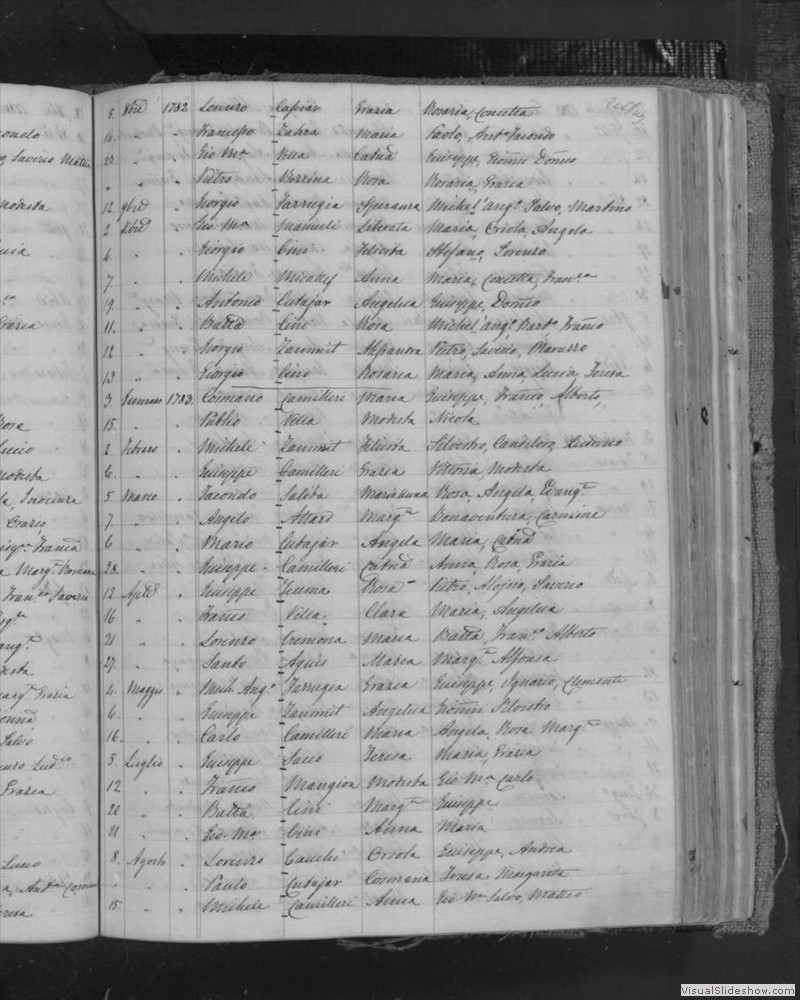 onelo
o, Saverio Mattia
Modesta
Grazia
Rosa
Lucio
Modesta
la, Inocenza
Orazio
a Marg.ª Romana
Fran.co Saverio
Salvo
Grazia
Lucio
5. 8bre 1782 Lorenzo Caspar Grazia Rosaria, Concetta Zebbug
16. " " Francesco Zahra Maria Paolo, Ant.o Jacondo
20. " " Gio M.ª Vella Catnã Giuseppe, Gionni Domco
" " " Pietro Vezzina Rosa Rosaria, Grazia
12. 9bre " Giorgio Farrugia Speranza Michel'ang.o Salvo, Martino
2 Xbre " Gio M.ª Manueli Liberata Maria, Orsola, Angela
6. " Giorgio Cini Felicita Stefano, Lorenzo
7. " Michele Micallef Anna Maria, Concetta, Fran.ca
19. " Antonio Cutajar Angelica Giuseppe, Domco
11. " Batta Cini Rosa Michel'ang.o Bart.o Franco
12 " Giorgio Zammit Alessandra Pietro, Saverio,
13 " Giorgio Cini Rosaria Maria, Anna, Lucia, Teresa
3. Gennaro 1783. Cosmano Camilleri Maria Giuseppe, Franco, Alberto,
15. " Publio Vella Modesta Nicola
2. Febraro " Michele Zammit Felicita Silvestro, Candiloro, Ludovico
6. " Giuseppe Camilleri Grazia Vittoria, Modesta
5 Marzo " Jacondo Saliba Mariettuna Rosa, Angela, Evang.ta
7. " Angelo Attard Marg.ta Bonaventura, Carmine
6 " Mario Cutajar Angela Maria, Catnã
28. " Giuseppe Camilleri Catnã Anna, Rosa, Grazia
12 Aprile " Giuseppe Gemma Rosa Pietro, Alojsio, Saverio
16 " Franco Vella Clara Maria, Angelica
21 " Lorenzo Cremona Maria Batta, Fran.co Alberto
27. " Santo Agius Maria Marg.ta Alfonsa
4. Maggio " Mich. Ang.o Farrugia Grazia Giuseppe, Ignazio, Clemente
6. " Giuseppe Zammit Angelica Gionni Silvestro
16. " Carlo Camilleri Maria Angela, Rosa Marg.ta
5. Luglio " Giuseppe Sacco Teresa Maria, Grazia
12 " Franco Mangion Modesta Gio M.ª Carlo
20 " Batta Cini Marg.ta Giuseppe
21 " Gio M.ª Cini Anna Maria
8. Agosto " Lorenzo Cauchi Orsola Giuseppe, Andrea
" " Paulo Cutajar Cosmana Teresa Margarita
15. " Michele Camilleri Anna Gio M.ª Salvo, Matteo
VisualSlideshow.com